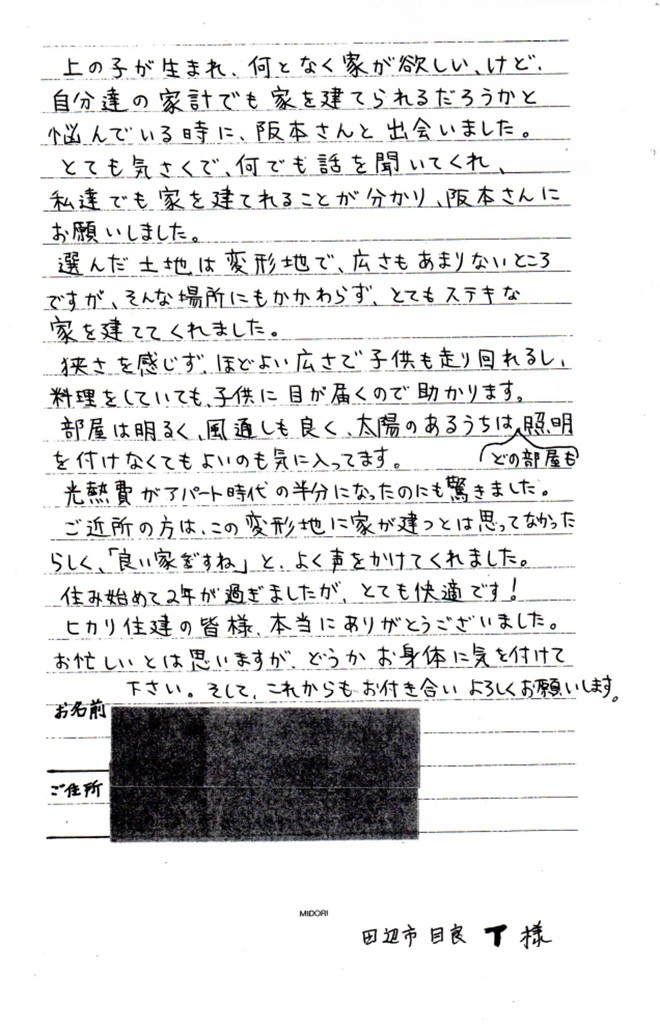 上の子が生まれ、何となく家が欲しい、けど、
自分達の家計でも家を建てられるだろうかと
悩んでいる時に、阪本さんと出会いました。
とても気さくで、何でも話を聞いてくれ、
私達でも家を建てれることが分かり、阪本さんに
お願いしました。
選んだ土地は変形地で、広さもあまりないところ
ですが、そんな場所にもかかわらず、とてもステキな
家を建ててくれました。
狭さを感じず、ほどよい広さで子供も走り回れるし、
料理をしていても、子供に目が届くので助かります。
部屋は明るく、風通しも良く、太陽のあるうちは、照明
どの部屋も
を付けなくてもよいのも気に入ってます。
光熱費がアパート時代の半分になったのにも驚きました。
ご近所の方は、この変形地に家が建つとは思ってなかった
らしく、「良い家ですね」と、よく声をかけてくれました。
住み始めて2年が過ぎましたが、とても快適です!
ヒカリ住建の皆様、本当にありがとうございました。
お忙しいとは思いますが、どうかお身体に気を付けて
下さい。そして、これからもお付き合いよろしくお願いします。
お名前
ご住所
MIDORI
田辺市目良 T 様